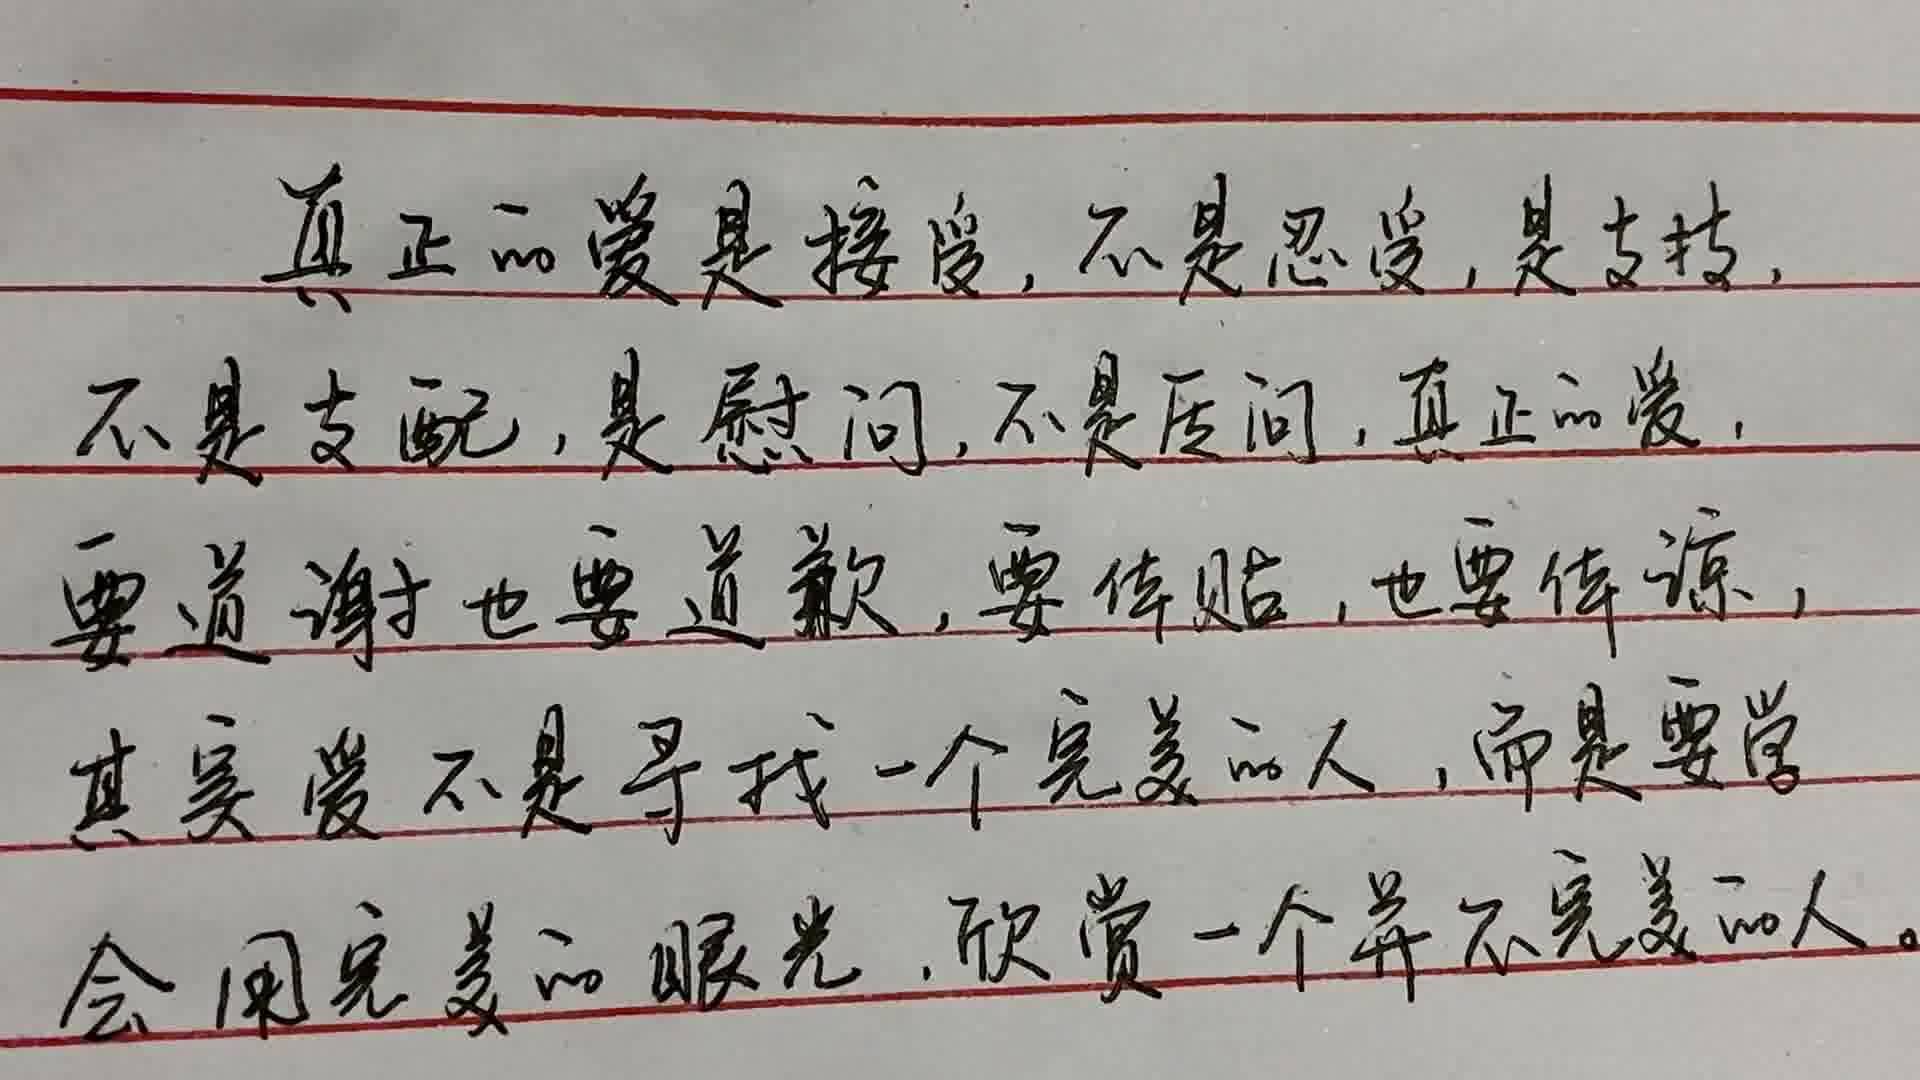 真正的爱是接受，不是忍受，是支技，
不是支配，是慰问，不是质问，真正的爱，
要道谢也要道歉，要体贴，也要体谅，
其实爱不是寻找一个完美的人，而是要学
会用完美的眼光，欣赏一个并不完美的人。